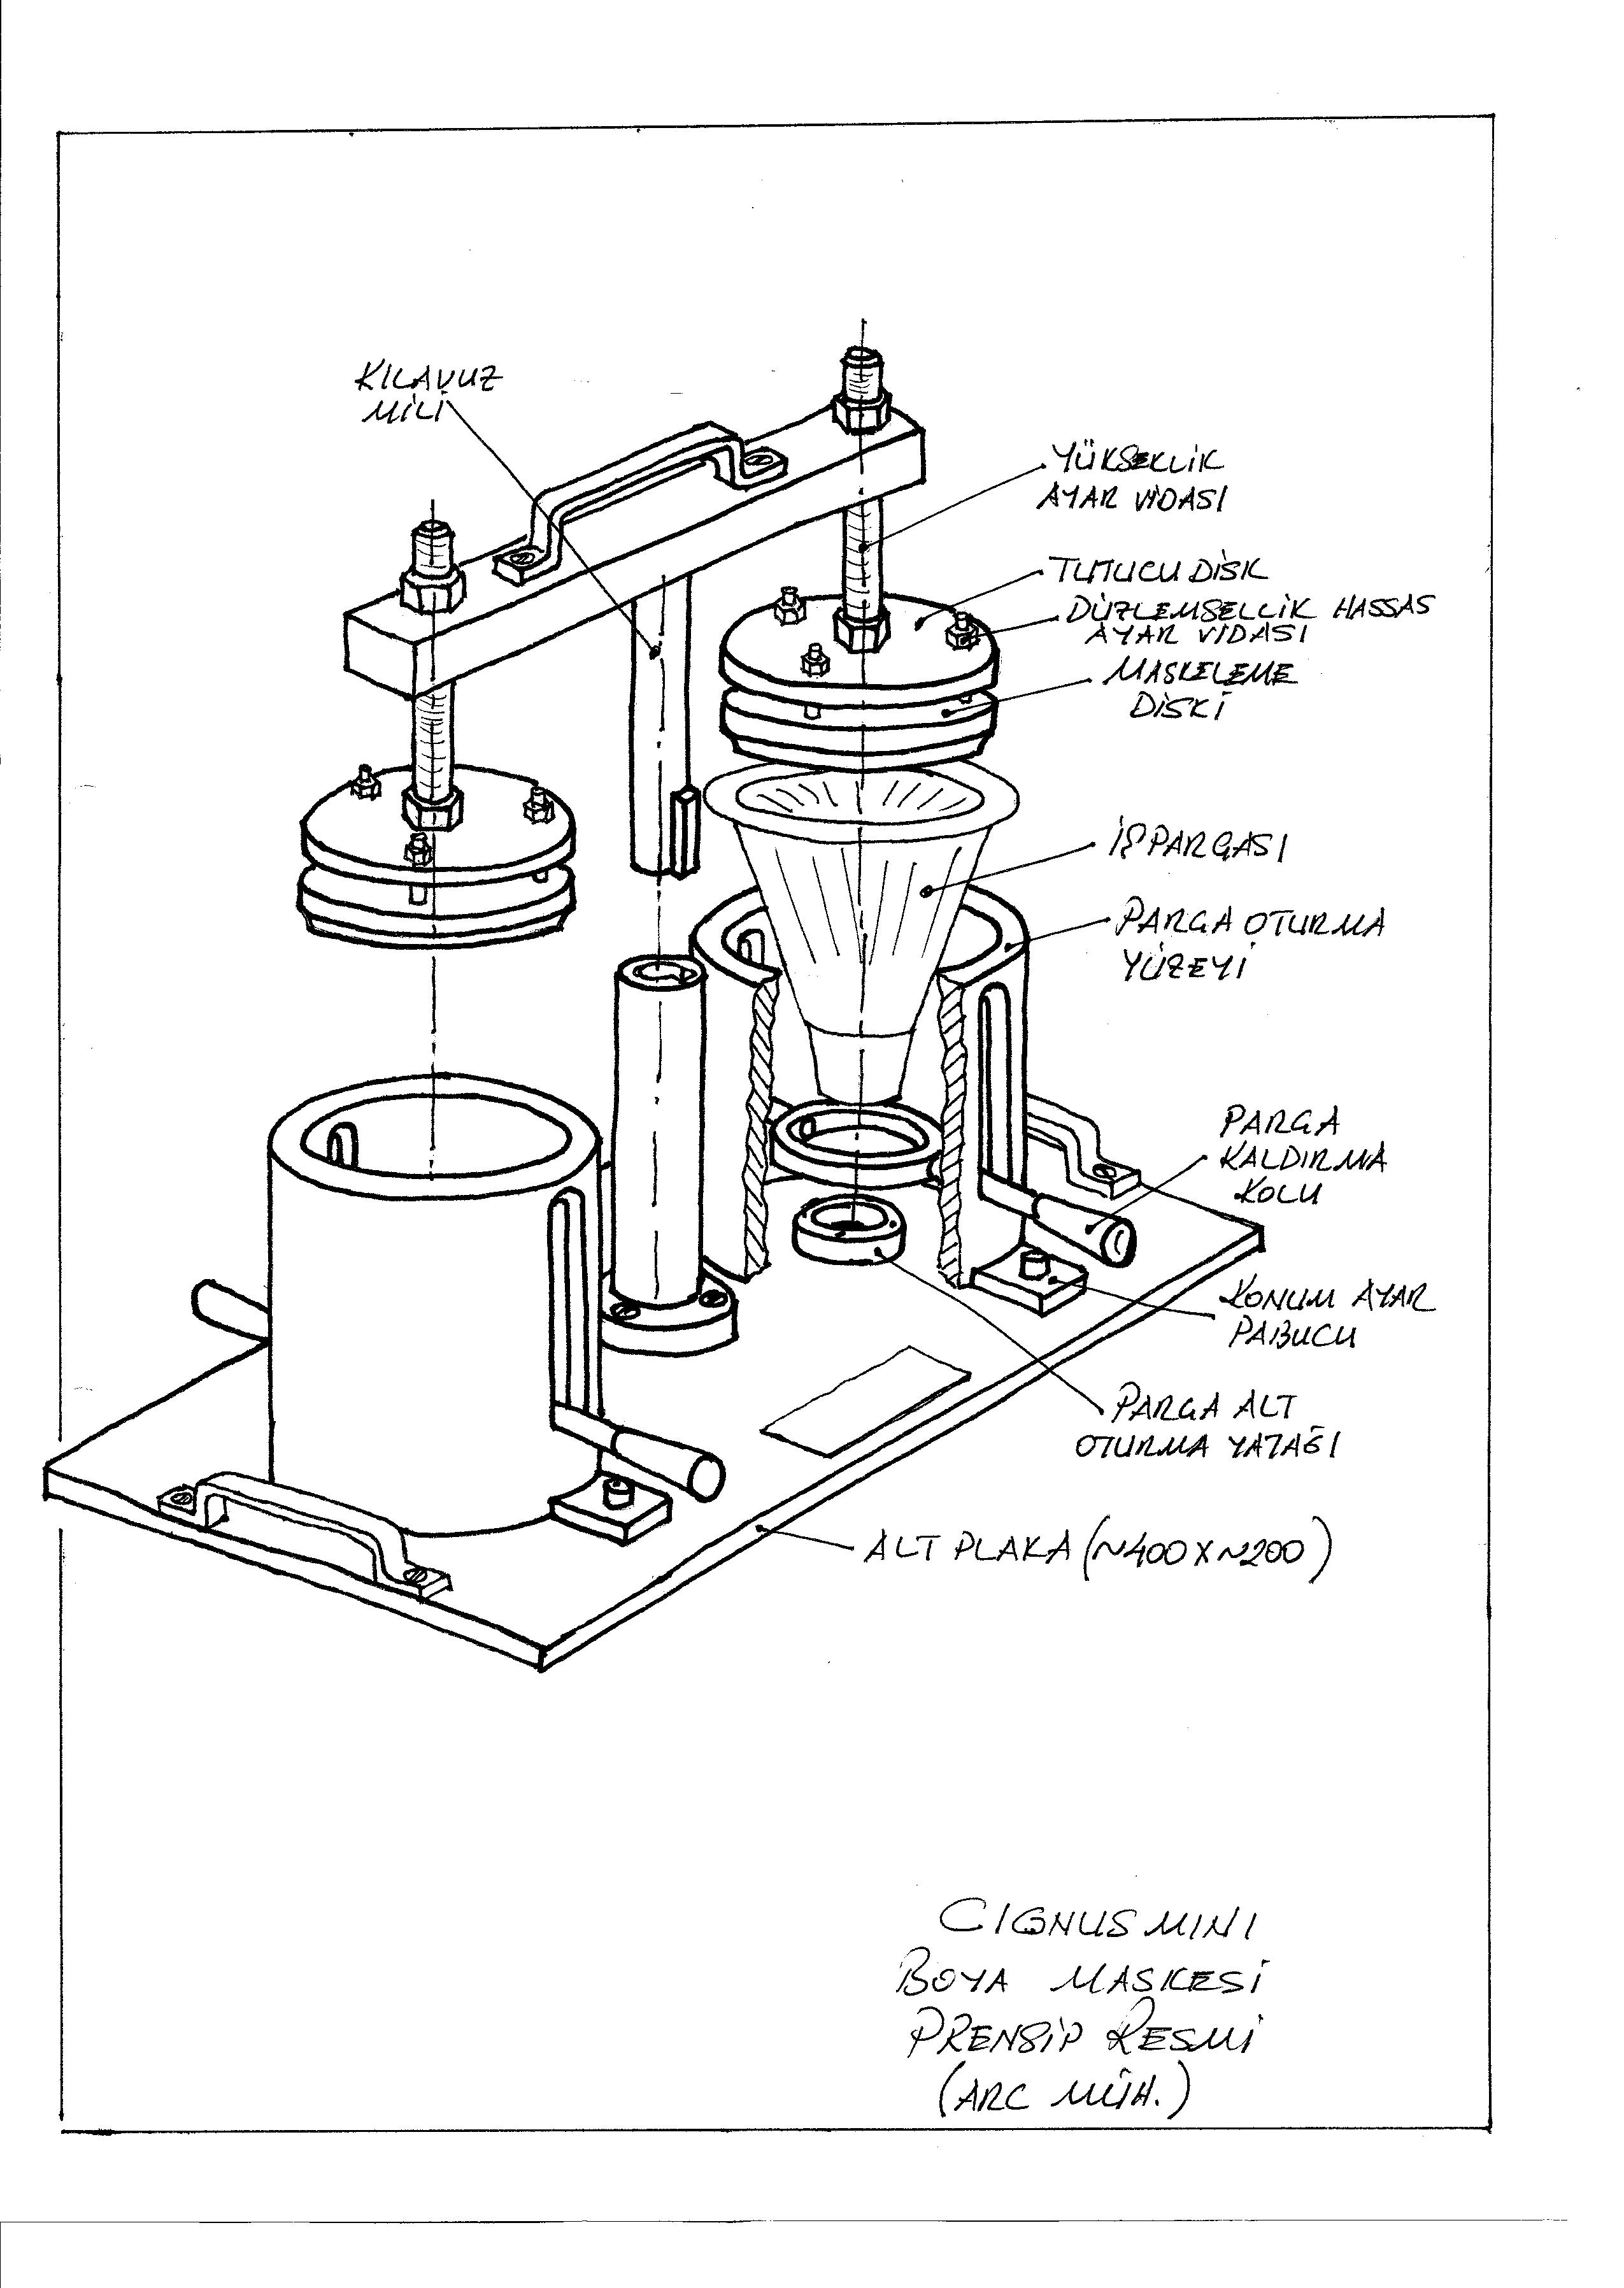 KILAVUZ
MİLİ
YÜKSEKLİK
AYAR VİDASI
TUTUCU DİSK
DÜZLEMSELLİK HASSAS
AYAR VİDASI
MASKELEME
DİSKİ
İŞ PARÇASI
PARÇA OTURMA
YÜZEYİ
PARÇA
KALDIRMA
KOLU
KONUM AYAR
PABUCU
PARÇA ALT
OTURMA YATAĞI
ALT PLAKA (~400 X ~200)
CIGNUS MINI
BOYA MASKESİ
PRENSİP RESMİ
(ARC MÜH.)